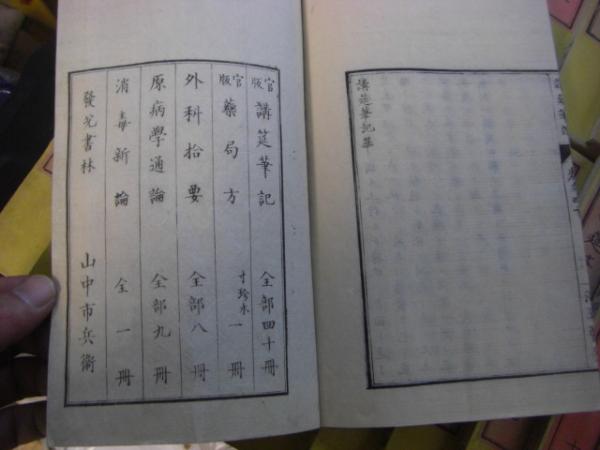 講筵筆記畢
官版 講筵筆記 全部四十冊
官版 藥局方 寸珍本 一冊
外科拾要 全部八冊
原病學通論 全部九冊
消毒新論 全一冊
發兌書林 山中市兵衛